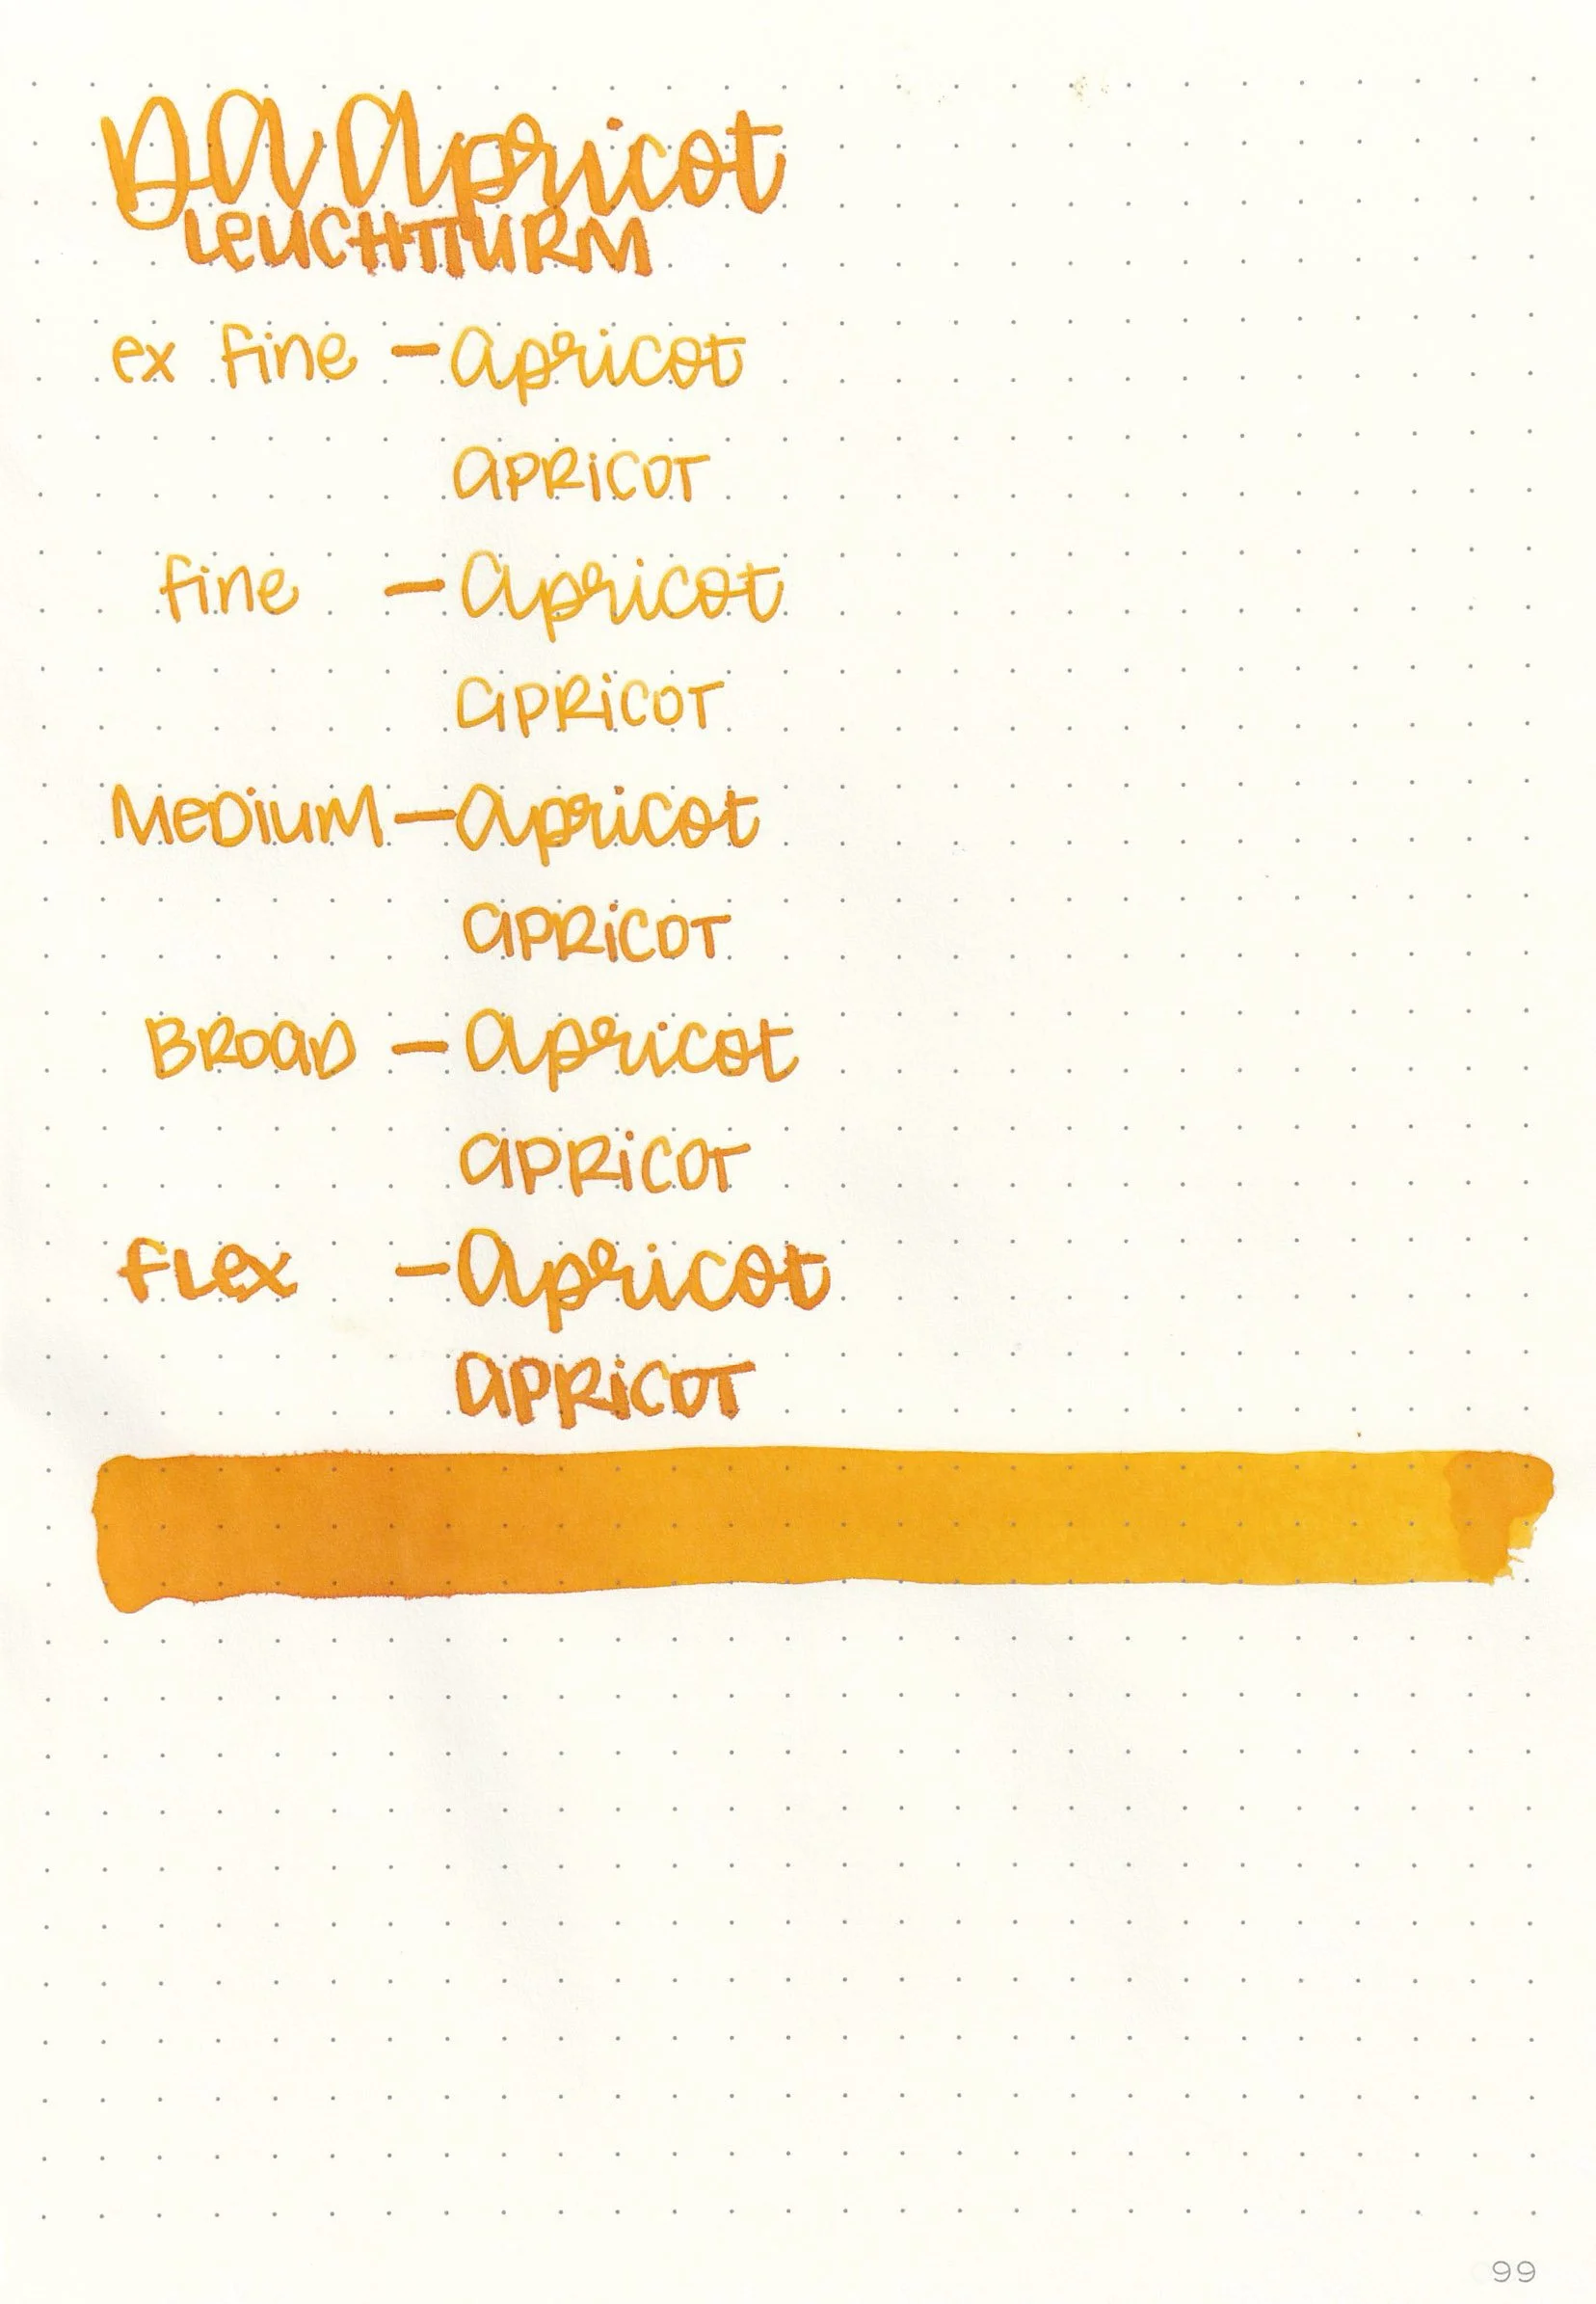 DA Apricot
LEUCHTTURM
ex fine - apricot
APRICOT
fine - apricot
APRICOT
MEDIUM - apricot
APRICOT
BROAD - apricot
APRICOT
FLEX - apricot
APRICOT
99